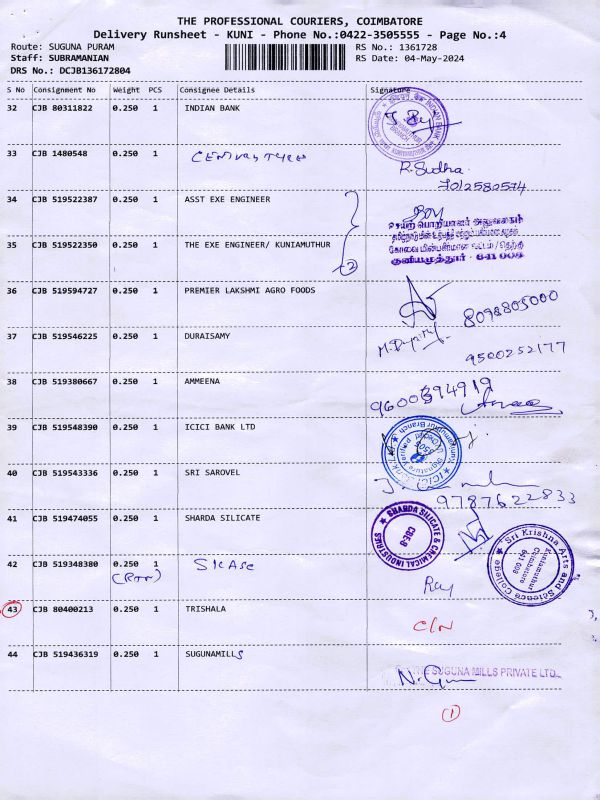 THE PROFESSIONAL COURIERS, COIMBATORE
Delivery Runsheet - KUNI - Phone No.:0422-3505555 - Page No.:4
Route: SUGUNA PURAM
RS No.: 1361728
Staff: SUBRAMANIAN
RS Date: 04-May-2024
DRS No.: DCJB136172804
S No Consignment No Weight PCS Consignee Details Signature
32 CJB 80311822 0.250 1 INDIAN BANK
33 CJB 1480548 1
R. Sudha
7012580574
34 CJB 519522387 0.250 1 ASST EXE ENGINEER
35 CJB 519522350 0.250 1 THE EXE ENGINEER/ KUNIAMUTHUR
2
குனியமுத்தூர் - 641 008
36 CJB 519594727 0.250 1 PREMIER LAKSHMI AGRO FOODS
8098805000
37 CJB 519546225 0.250 1 DURAISAMY
9500252177
38 CJB 519380667 0.250 1 AMMEENA
9600394919
39 CJB 519548390 0.250 1 ICICI BANK LTD
40 CJB 519543336 0.250 1 SRI SAROVEL
9787622833
41 CJB 519474055 0.250 1 SHARDA SILICATE
SHARDA SILICATE & CHEMICAL INDUSTRIES
CBE-8
Sri Krishna Arts and Science College
Kuniamuthur
Coimbatore
641 008
42 CJB 519348380 0.250 1 SKASC
(RTN)
Ray
43 CJB 80400213 0.250 1 TRISHALA
C/N
44 CJB 519436319 0.250 1 SUGUNAMILLS
SUGUNA MILLS PRIVATE LTD.,
1